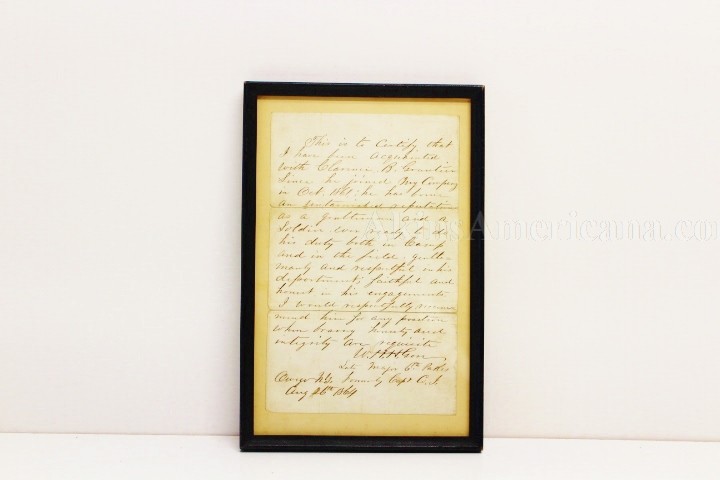 This is to Certify that
I have been acquainted
with Clarence B.
Since he joined My Company
in Oct. 1861. he has borne
an untarnished reputation
as a gentleman and a
Soldier ever ready to do
his duty both in Camp
and in the field. gentle-
manly and respectful in his
deportment, faithful and
honest in his engagements
I would respectfully recom
mend him for any position
where bravery honesty and
integrity are requisite
W. H. H.
Late Major 6th
Owego N.Y. formerly Capt C. I.
Aug 26th 1864
Americana.com